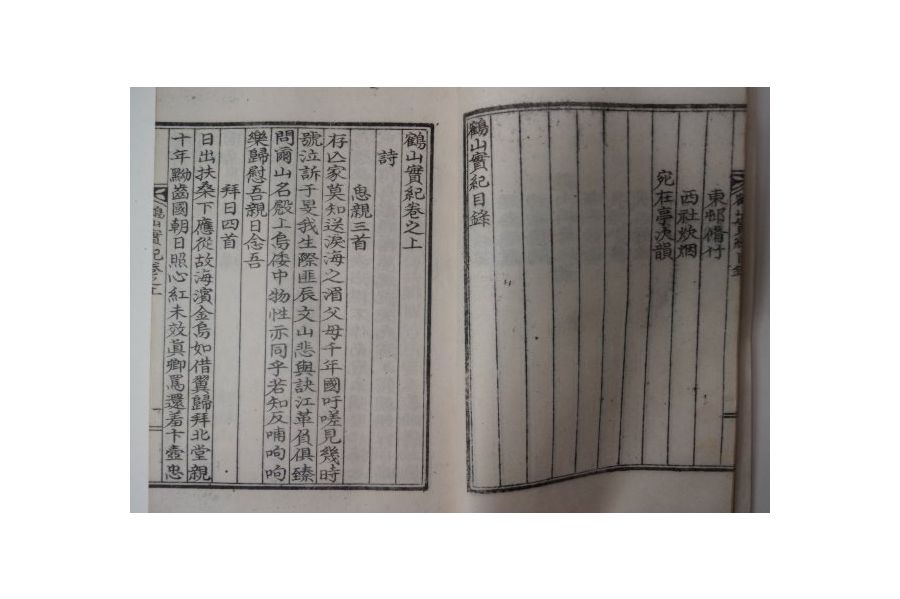 東邨脩竹
西社炊烟
宛在亭次韻
鶴山實紀目錄
鶴山實紀卷之上
詩
思親三首
存亾家莫知送淚海之湄父母千年國吁嗟見幾時
號泣訴于旻我生際匪辰文山悲與訣江革負俱臻
問爾山名殿上烏倭中物性亦同乎若知反哺响响
樂歸慰吾親日念吾
拜日四首
日出扶桑下應從故海濱金烏如借翼歸拜北堂親
十年黝齒國朝日照心紅未效眞卿罵還羞卞壼忠